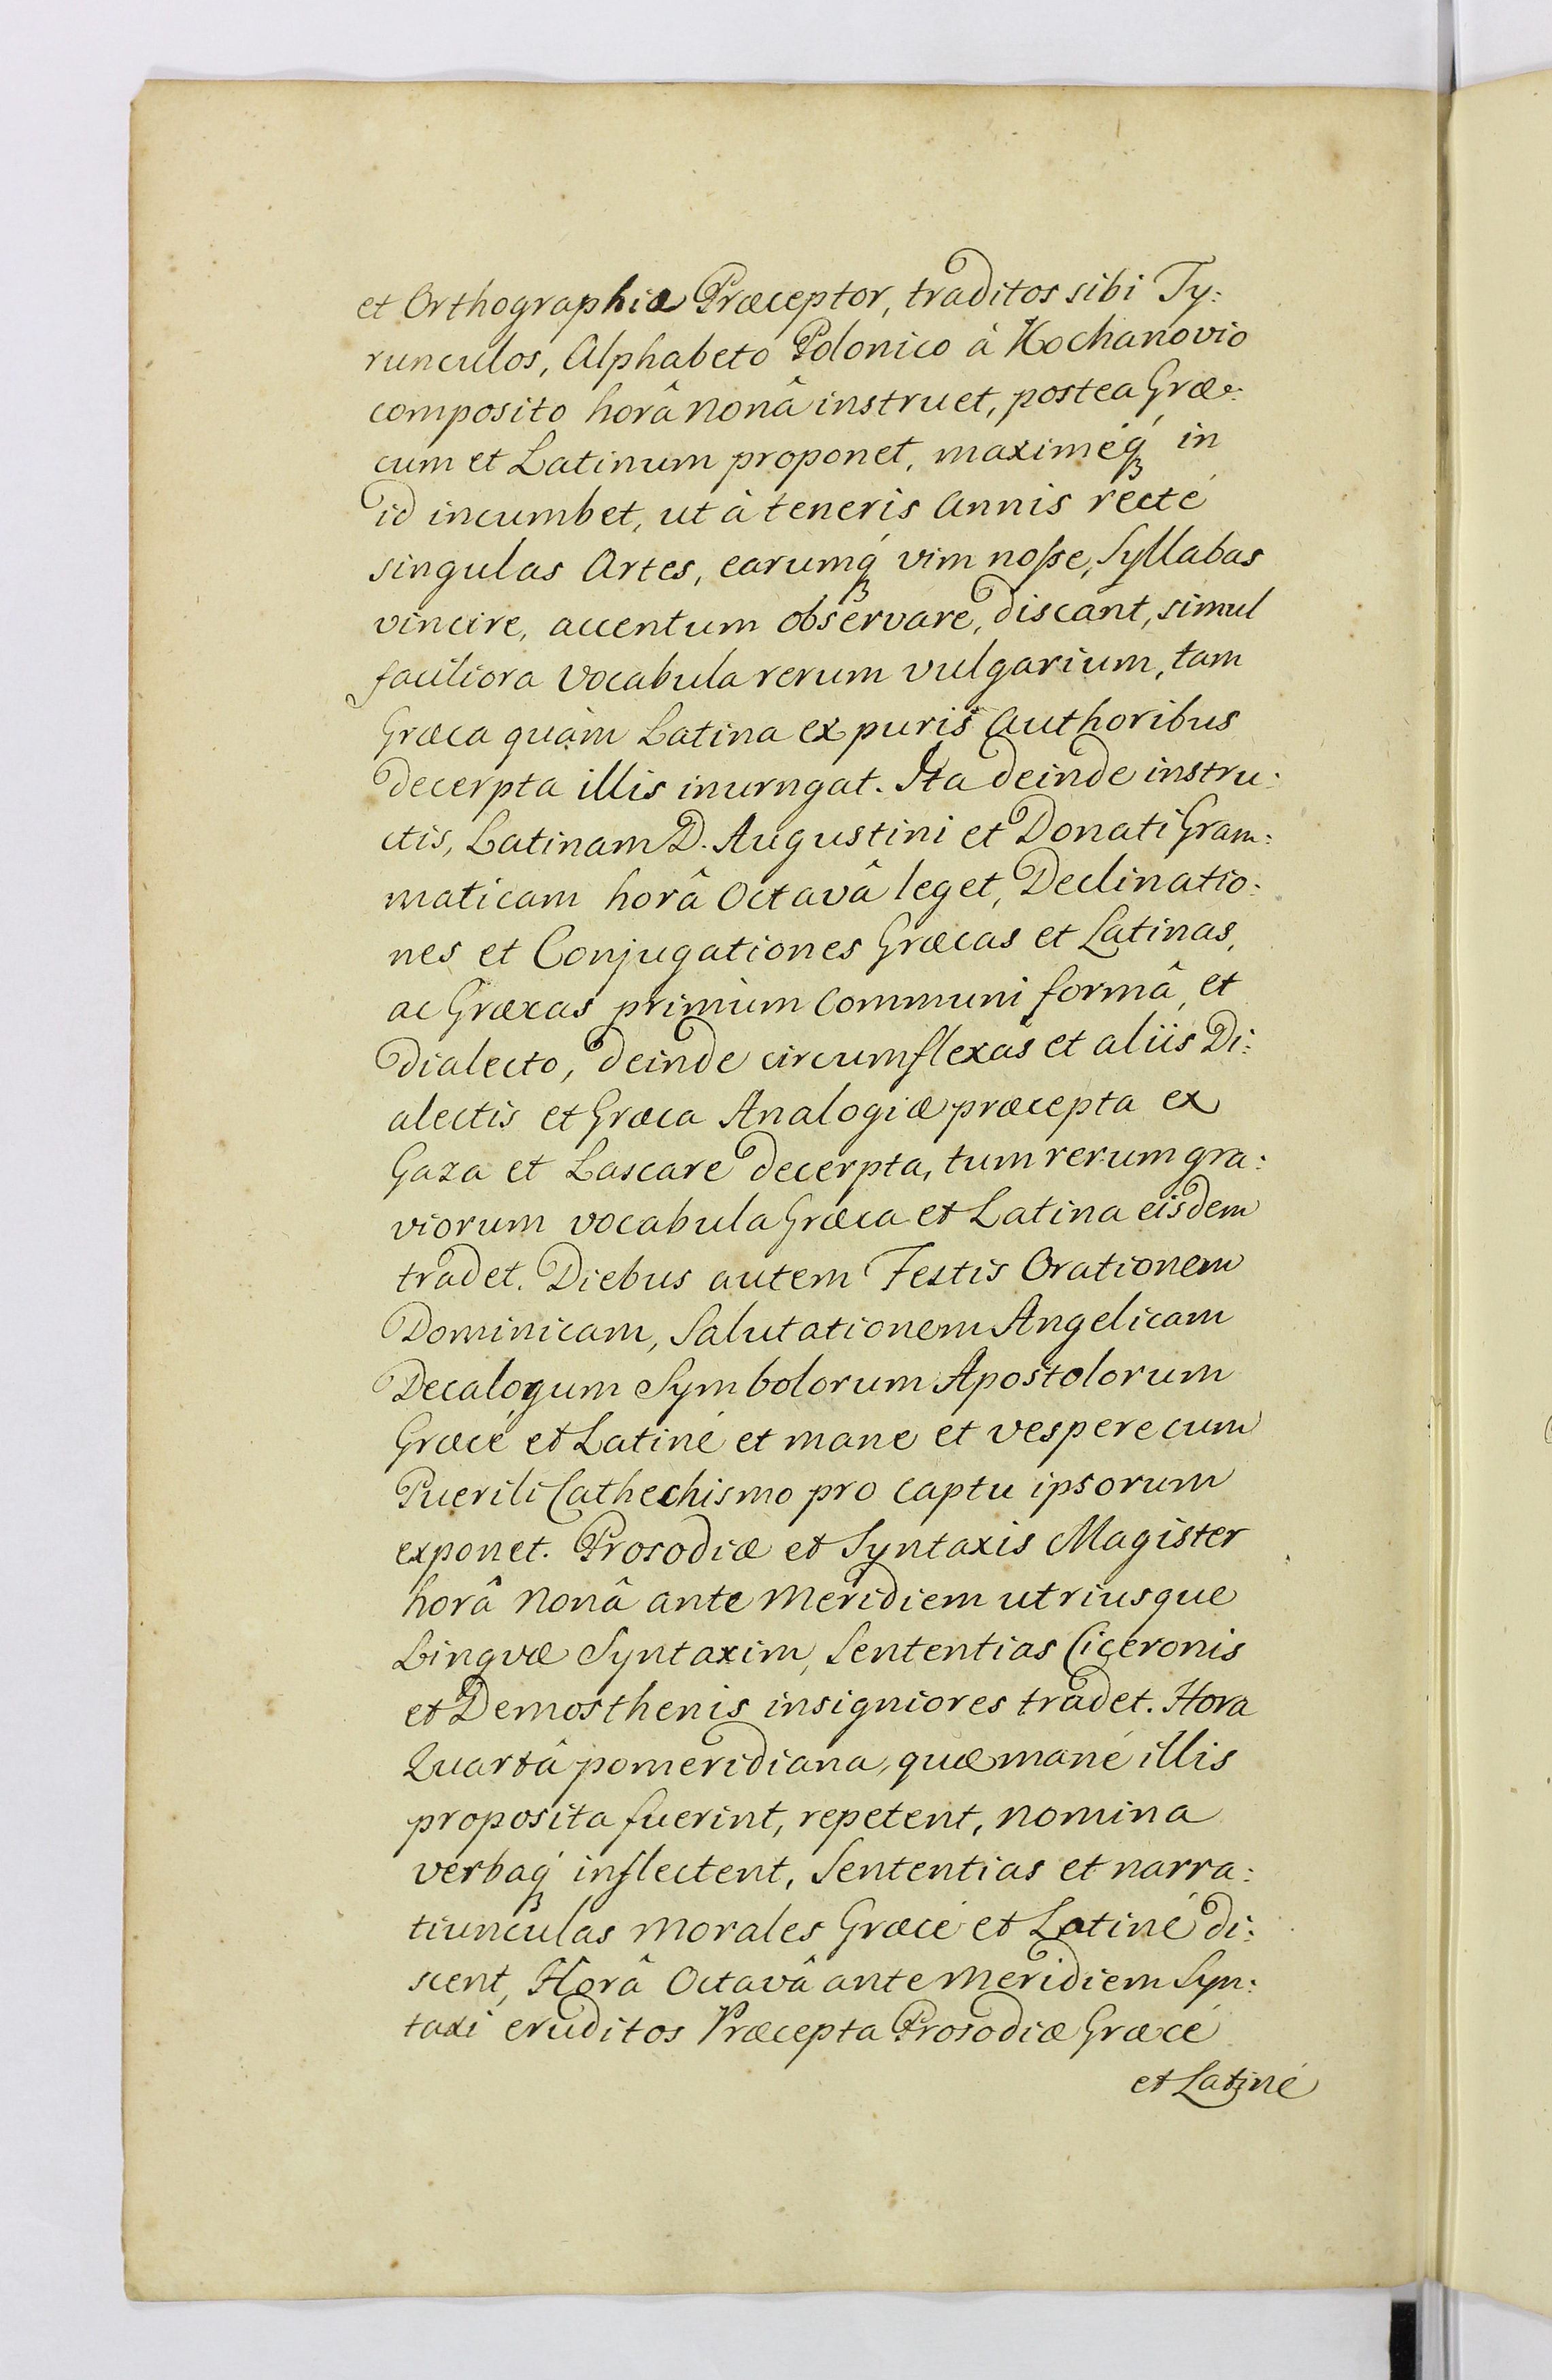 et Orthographiæ Præceptor, traditos sibi Ty:
runculos, Alphabeto Polonico à Kochanovio
composito horâ nonâ instruet, postea Græ:
cum et Latinum proponet, maximéq́ꝫ in
id incumbet, ut à teneris Annis recté
singulas Artes, earumq́ꝫ vim noſse, Syllabas
vincire, accentum observare, discant, simul
faciliora Vocabula rerum vulgarium, tam
Græca quàm Latina ex puris Authoribus
decerpta illis inurngat. Ita deinde instru:
ctis, Latinam D. Augustini et Donati Gram:
maticam horâ Octavâ leget, Declinatio:
nes et Conjugationes Græcas et Latinas,
ac Græcas primùm Communi formâ, et
Dialecto, deinde circumflexas et aliis Di:
alectis et Græca Analogiæ præcepta ex
Gaza et Lascare decerpta, tum rerum gra:
viorum vocabula Græca et Latina eisdem
tradet. Diebus autem Festis Orationem
Dominicam, Salutationem Angelicam
Decalogum Symbolorum Apostolorum
Græcé et Latiné et mane et vespere cum
Puerili Cathechismo pro captu ipsorum
exponet. Prosodiæ et Syntaxis Magister
horâ Nonâ ante Meridiem utriusque
Lingvæ Syntaxim, Sententias Ciceronis
et Demosthenis insigniores tradet. Hora
Quartâ pomeridiana, quæ mané illis
proposita fuerint, repetent, nomina
verbaq́ꝫ inflectent, Sententias et narra:
tiunculas Morales Græcé et Latiné di:
scent, Horâ Octavâ ante Meridiem Syn:
taxi eruditos Præcepta Prosodiæ Græcé
et Latiné